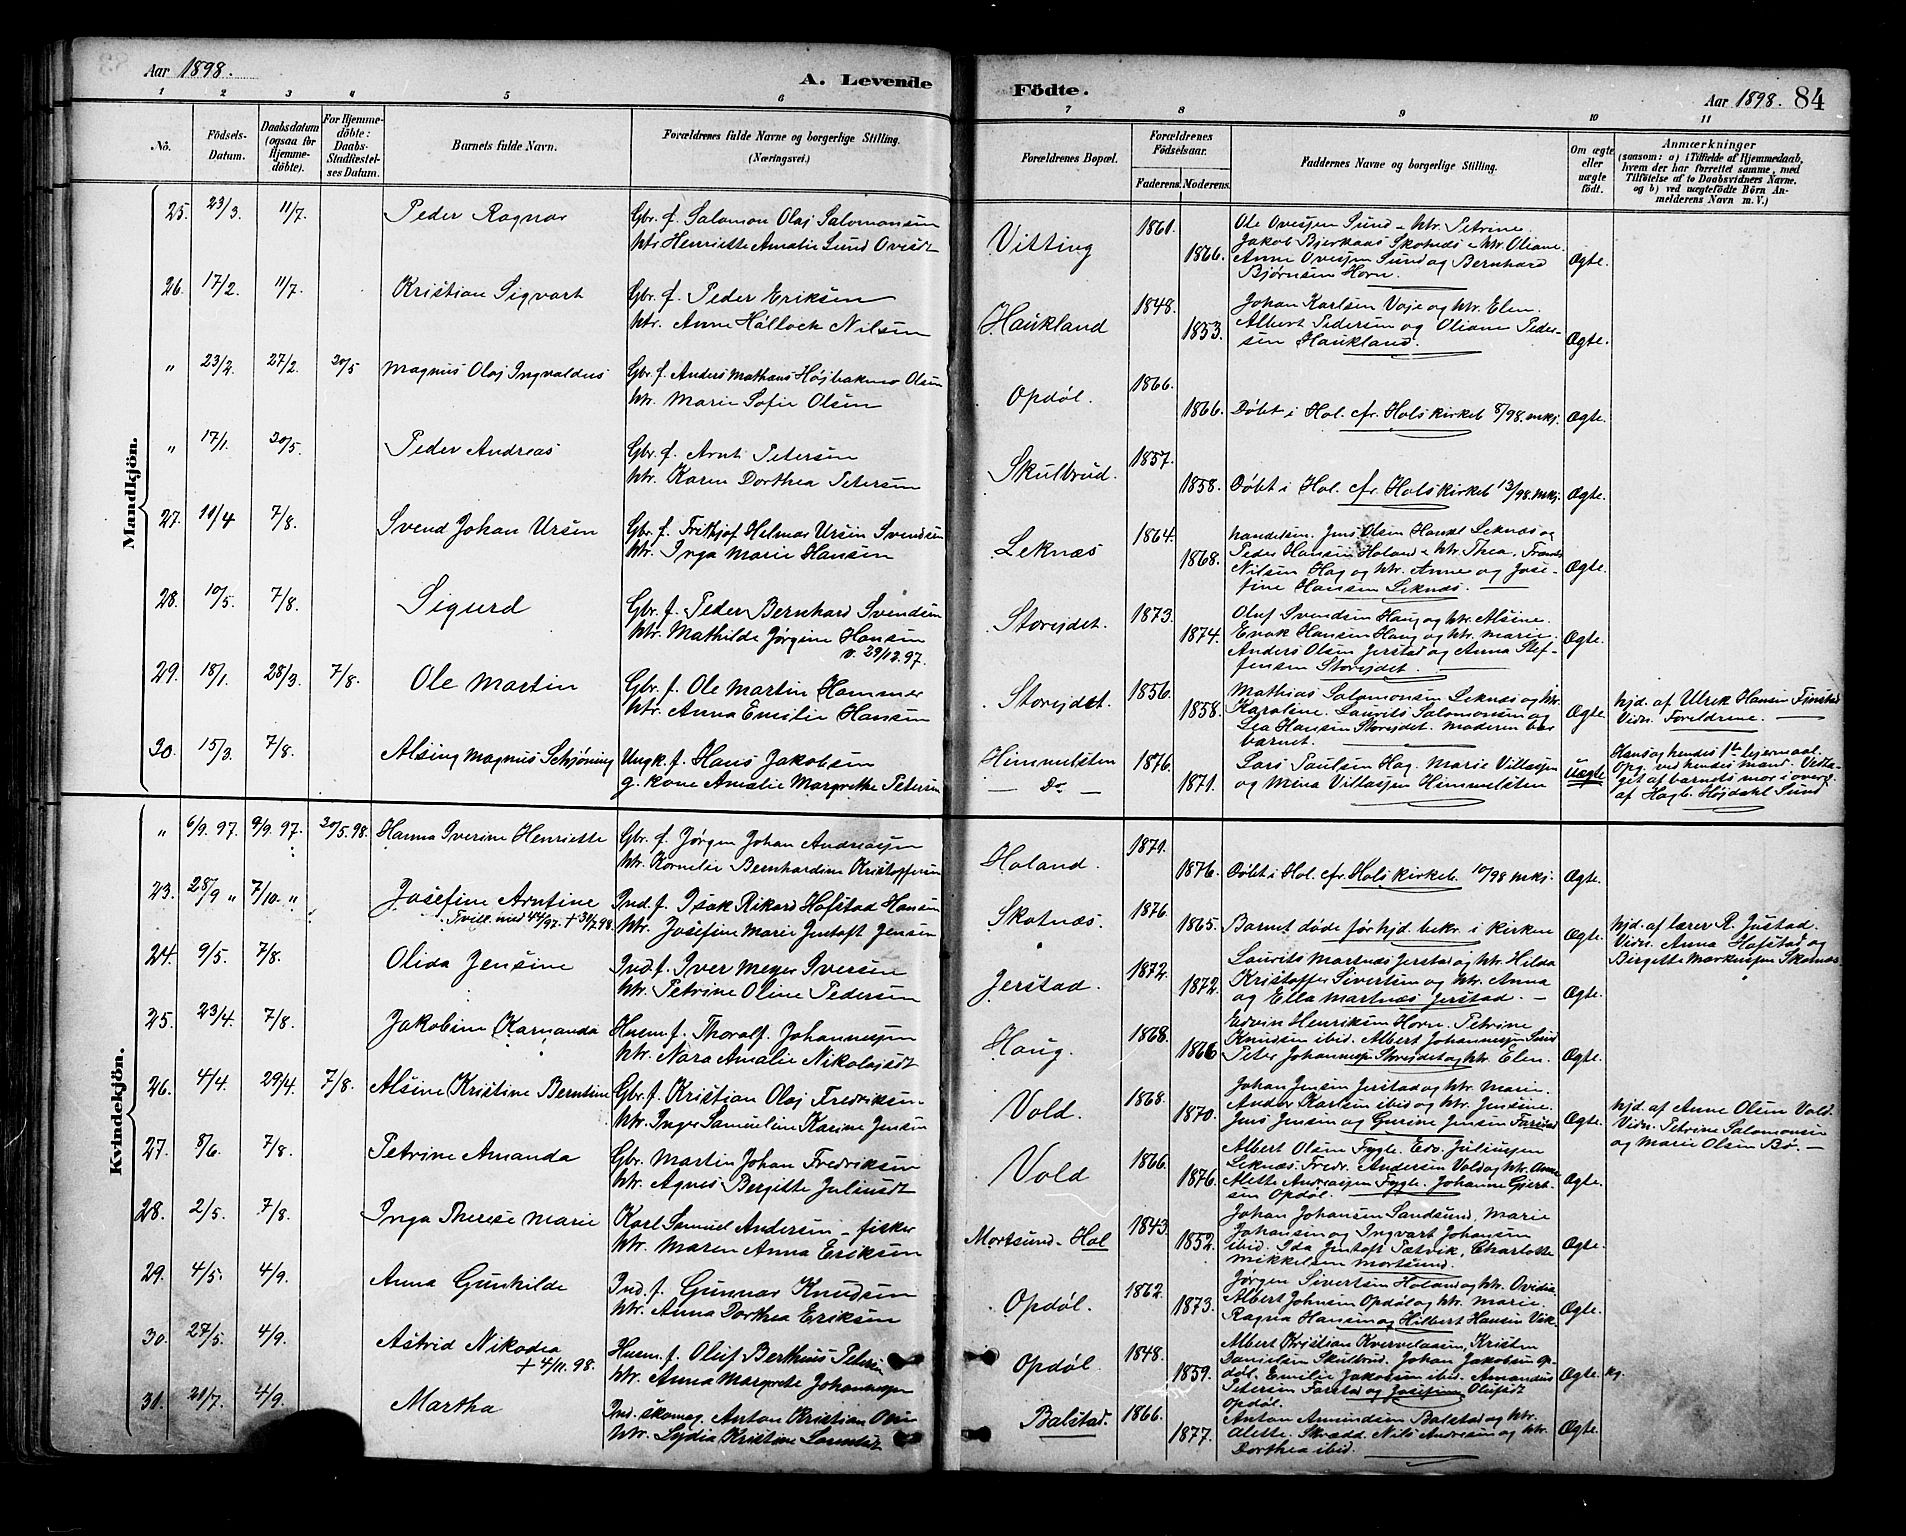 Aar 1898.
A. Levende
Födte.
Aar 1898. 84
1 2 3 4 5 6 7 8 9 10 11
No.
Födsels-
Datum.
Daabsdatum
(ogsaa for
Hjemme-
döbte).
For Hjemme-
döbte:
Daabs-
Stadfæstel-
ses Datum.
Barnets fulde Navn.
Forældrenes fulde Navne og borgerlige Stilling.
(Næringsvei.)
Forældrenes Bopæl.
Forældrenes
Födselsaar.
Faderens. Moderens.
Faddernes Navne og borgerlige Stilling.
Om ægte
eller
uægte
födt.
Anmærkninger
(saasom: a) i Tilfælde af Hjemmedaab,
hvem der har forrettet samme, med
Tilföielse af to Daabsvidners Navne,
og b) ved uægtefödte Börn An-
melderens Navn m. V.)
Mandkjön.
25. 23/3. 11/7. Peder Ragnar Gbr. f. Salomon Olaj Salomonsen Vitting 1861. Ole Ovesen Sund - htr. Petrine
htr. Henriette Amalie Sund Ovesdt 1866. Jakob Bjerkaas Skotnæs - htr. Oliane
Anne Ovesen Sund og Bernhard Ægte.
Bjørnsen Horn.
26. 17/2. 11/7. Kristian Sigvart Gbr. f. Peder Eriksen Haukland 1848. Johan Karlsen Voje og htr. Elen.
htr. Anne Hállock Nilsen 1853. Albert Pedersen og Oliane Peder-
sen Haukland. Ægte.
" 23/2. 27/2. 20/5 Magnus Olaj Ingvaldus Gbr. f. Anders Mathæus Højbakmo Olsen Opdøl. 1866.
htr. Marie Sofie Olsen 1866. Døbt i Hol. cfr. Hols kirkeb 8/98. mkj. Ægte.
" 17/1. 20/5. Peder Andreas Gbr. f. Arnt Petersen Skulbrud. 1857.
htr. Karen Dorthea Petersen 1858. Døbt i Hol. cfr. Hols kirkeb 13/98. mkj. Ægte.
27. 11/4 7/8. Svend Johan Ursin Gbr. f. Frithjof Hilmar Ursin Svendsen Leknæs 1864. handelsm. Jens Olsen Leknæs og
htr. Inga Marie Hansen 1868. Peder Hansen Holand - htr. Thea,
Nilsen Hag og htr. Anne og Jose- Ægte.
fine Hansen Leknæs.
28. 10/5. 7/8. Sigurd Gbr. f. Peder Bernhard Svendsen Storejdet. 1873. Oluf Svendsen Haug og htr. Alsine.
htr. Mathilde Jørgine Hansen 1874. Evak Hansen Haug og htr. Marie. Ægte.
v. 29/12.97. Anders Olsen Jerstad og Anna Stef-
fensen Storejdet.
29. 18/1. 28/3. 7/8. Ole Martin Gbr. f. Ole Martin Hammer Storejdet. 1856. Mathias Salomonsen Leknæs og htr. hjd. af Ulrik Hansen Finstad
htr. Anna Emilie Hansen 1858. Karoline. Laurits Salomonsen og Ægte. Vidn. Foreldrene.
Lea Hansen Storejdet. Moderen bar
barnet.
30. 15/3 7/8. Alsing Magnus Schjøning Ungk. f. Hans Jakobsen Himmelsten 1876. Lars Paulsen Hag. Marie Villassen Uægte Hans og hendes 1te lejermaal.
g. kone Amalie Margrethe Petersen - Do. - 1871. og Mina Villassen Himmelsten Opg. ved hendes mand. Vedta-
get af barnets mor i overv.
af Hagb. Højdahl Sund
Kvindekjön.
" 6/9. 97. 9/9. 97. 20/5.98. Hanna Iverine Henriette Gbr. f. Jørgen Johan Andreasen Holand. 1871.
htr. Kornelie Bernhardine Kristoffersen 1876. Døbt i Hol. cfr. Hols kirkeb. 10/98 mkj. Ægte.
23. 28/9 " 7/10. " Josefine Arntine Ind. f. Isak Rikard Hofstad Hansen Skotnæs. 1876. hjd. af lærer R. Justad.
Tvill. med 44/97. + 31/7.98. htr. Josefine Marie Jentoft Jensen 1865. Barnet døde før hjd. bekr. i kirken Ægte. Vidn. Anna Hofstad og
Birgette Markussen Skotnæs
24. 9/5. 7/8. Olida Jensine Ind. f. Iver Meyer Iversen Jerstad. 1872. Laurits Martnæs Jerstad og htr. Hilda
htr. Petrine Oline Pedersen 1872. Kristoffer Sivertsen og htr. Anna
og Ella Martnæs Jerstad. - Ægte.
25. 23/4. 7/8. Jakobine Kamanda Husm. f. Thoralf Johannessen Haug. 1868. Edvin Henriksen Horn. Petrine
htr. Nora Amalie Nikolajsdt 1866 Knudsen ibid. Albert Johannessen Sund
Peter Johannessen Storejdet og htr. Elen. Ægte.
26. 4/4. 29/4. 7/8. Alsine Kristine Berntine Gbr. f. Kristian Olaj Fredriksen Vold. 1868. Johan Jensen Jerstad og htr. Marie.
htr. Inger Samueline Karine Jensen 1870. Ander Karlsen ibid og htr. Jensine. hjd. af Anne Olsen Vold.
Jens Jensen og Gurine Jensen Farstad Ægte. Vidn. Petrine Salomonsen
og Marie Olsen Bø. -
27. 8/6. 7/8. Petrine Amanda Gbr. Martin Johan Fredriksen Vold 1866. Albert Olsen Fygle. Edv. Juliussen
htr. Agnes Bergitte Juliusdt 1876. Leknæs. Fredr. Andersen Vold og htr. Anne
Alette Andreassen Fygle. Johanne Gjert- Ægte.
sen Opdøl.
28. 2/5. 7/8. Inga Therese Marie Karl Samuel Andersen - fisker Mortsund - Hol 1843. Johan Johansen Sandsund, Marie
htr. Maren Anna Eriksen 1852. Johansen og Ingvart Johansen
ibid. Ida Jentoft Tetvik, Charlotte Ægte.
Mikkelsen Mortsund.
29. 4/5. 4/9. Anna Gunhilde Ind. f. Gunnar Knudsen Opdøl. 1862. Jørgen Sivertsen Holand og htr. Ovidia
htr. Anna Dorthea Eriksen 1873. Albert Johnsen Opdøl og htr. Marie.
Ragna Hansen og Hilbert Hansen Vik. Ægte.
30. 27/5. 4/9. Astrid Nikodia Husm. f. Oluf Berthus Petersen Opdøl. 1848. Albert Kristian Kvervelaasen, Kristen
+ 4/11.98. htr. Anna Margrete Johannessen 1859. Danielsen Skulbrud. Johan Jakobsen Op-
døl. Emilie Jakobsen ibid. Amandus Ægte.
Petersen Farstad og Josefine Olufsdt
Opdøl.
31. 21/7. 4/9. Martha Ind. skomag. Anton Kristian Balstad. 1866. Anton Amundsen Balstad og htr.
htr. Lydia Kristine 1877. Alette. Skrædd. Nils Andresen og htr. Ægte.
Dorthea ibid.